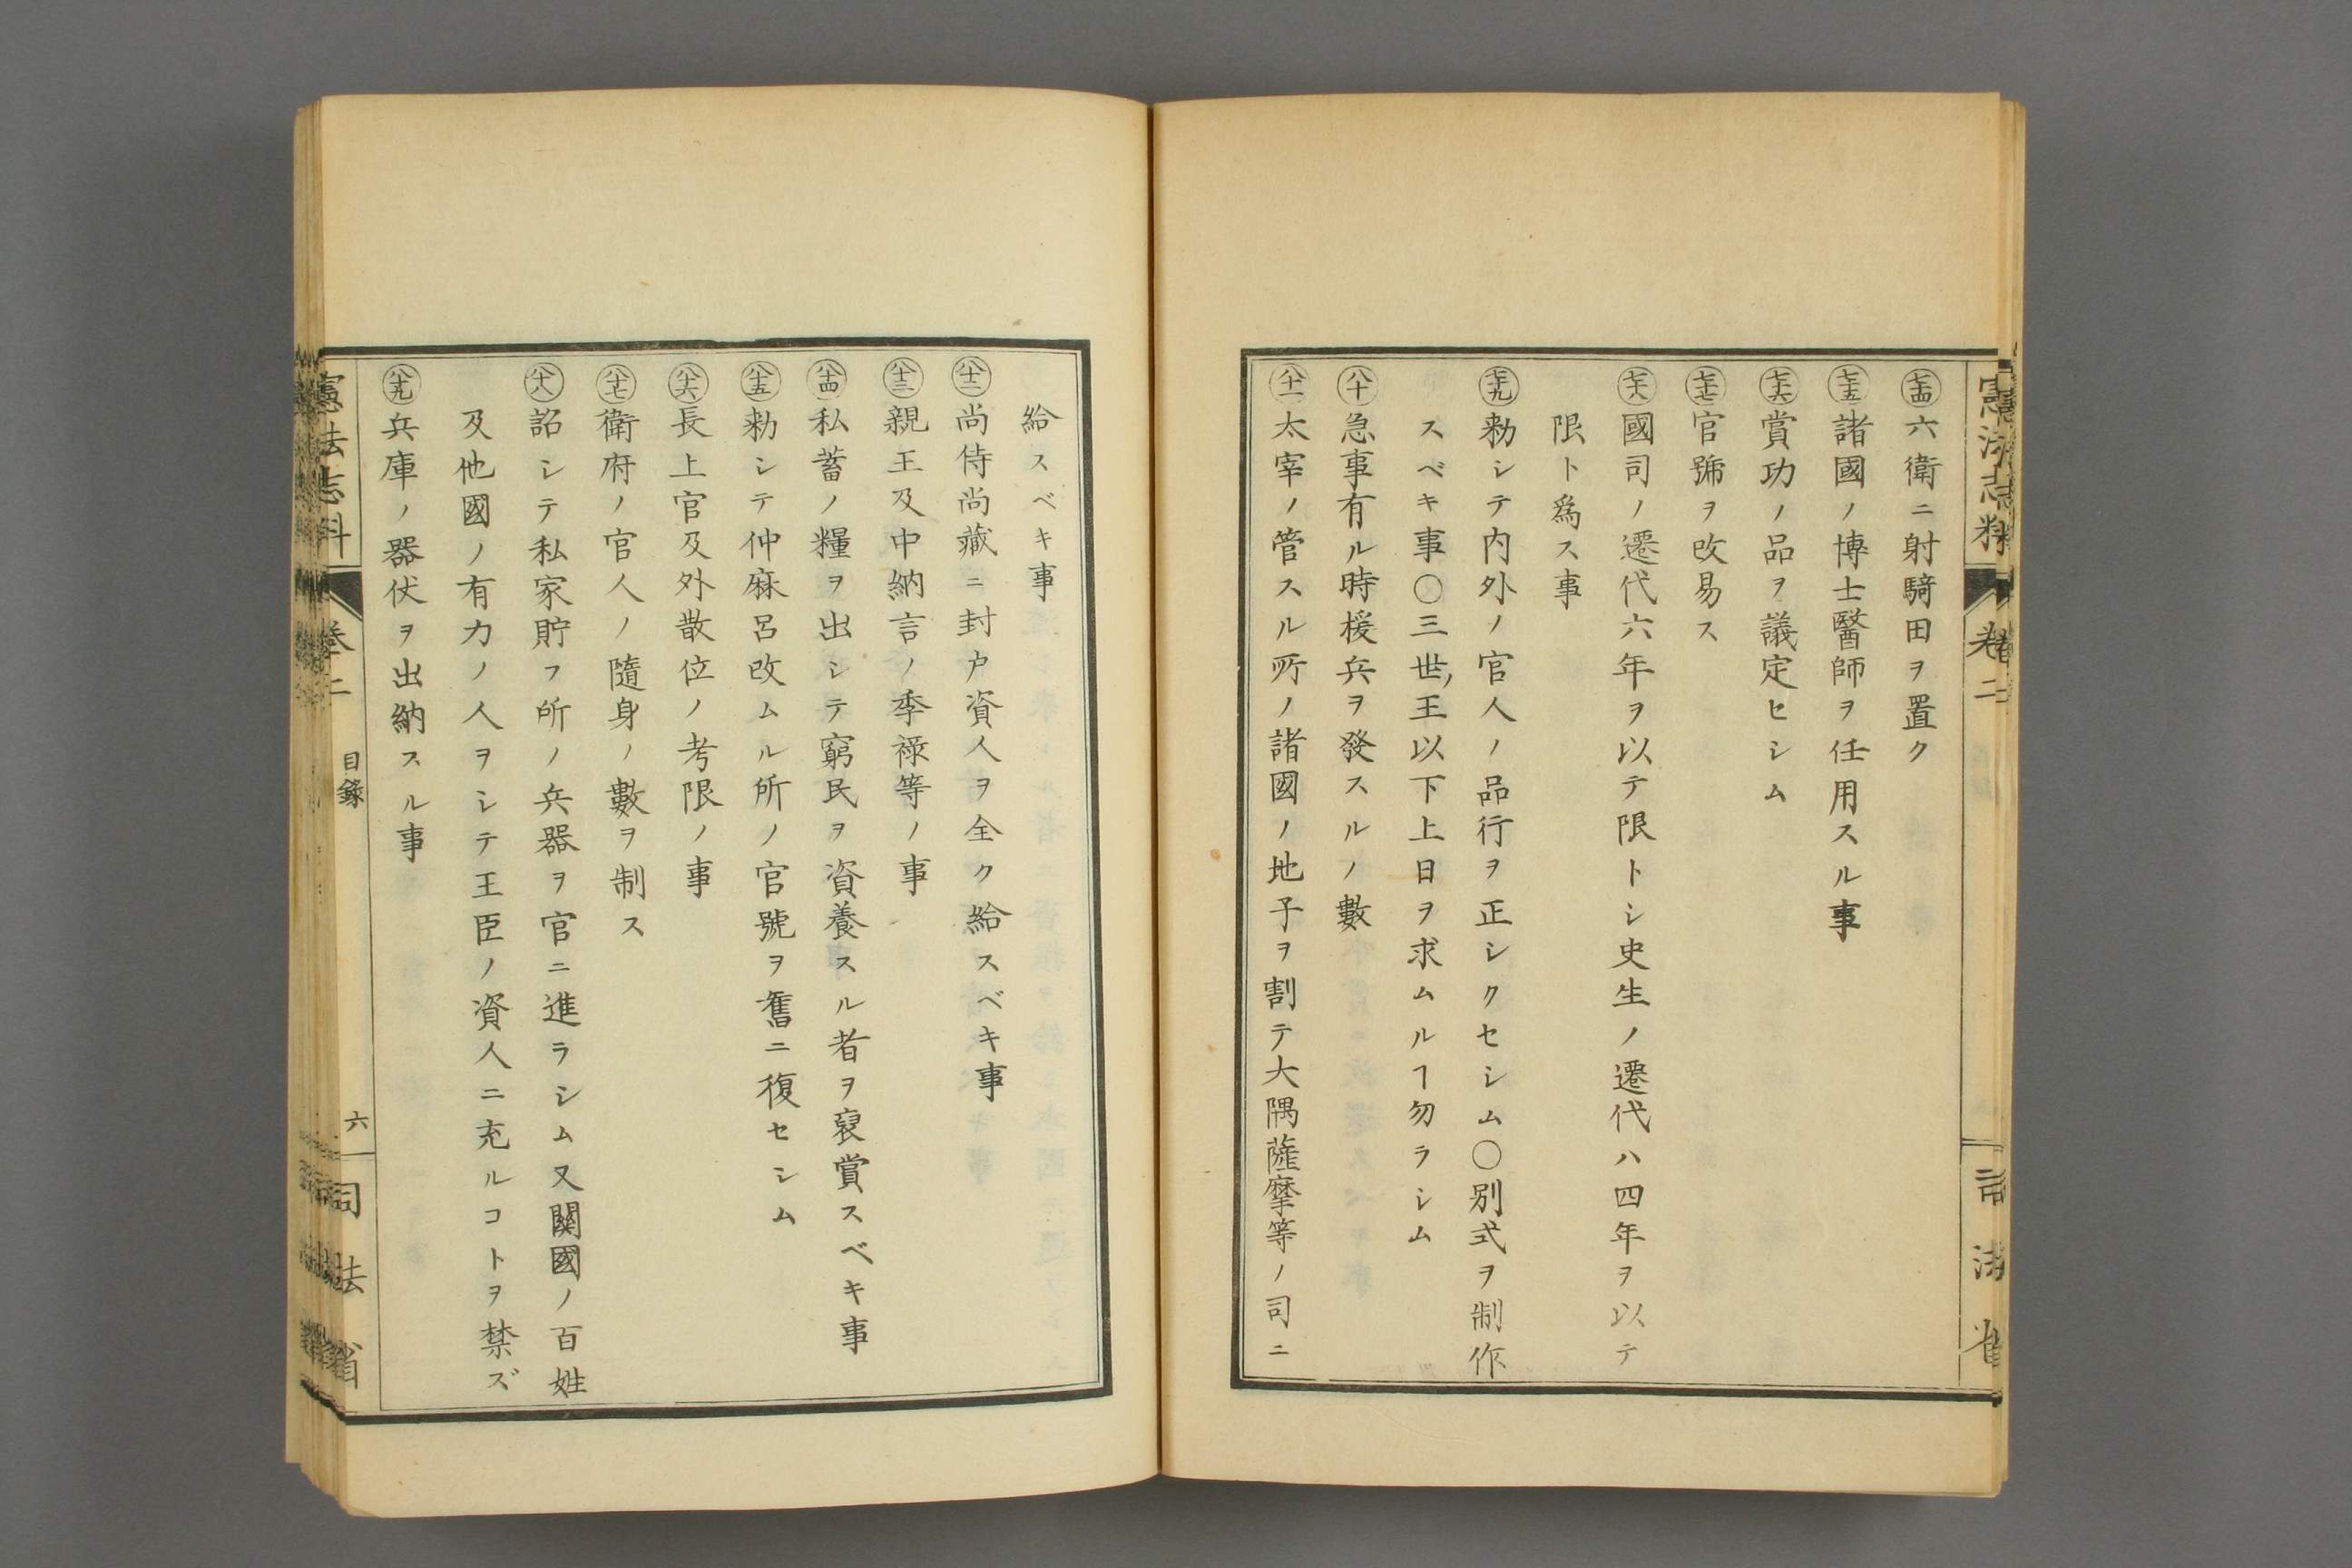 憲法志料
卷二
司法省
七十四 六衛ニ射騎田ヲ置ク
七十五 諸國ノ博士醫師ヲ任用スル事
七十六 賞功ノ品ヲ議定セシム
七十七 官號ヲ改易ス
七十八 國司ノ遷代六年ヲ以テ限トシ史生ノ遷代ハ四年ヲ以テ
限ト爲ス事
七十九 勅シテ内外ノ官人ノ品行ヲ正シクセシム〇別式ヲ制作
スベキ事〇三世王以下上日ヲ求ムルヿ勿ラシム
八十 急事有ル時援兵ヲ發スルノ數
八十一 太宰ノ管スル所ノ諸國ノ地子ヲ割テ大隅薩摩等ノ司ニ
給スベキ事
八十二 尚侍尚藏ニ封戸資人ヲ全ク給スベキ事
八十三 親王及中納言ノ季祿等ノ事
八十四 私蓄ノ糧ヲ出シテ窮民ヲ資養スル者ヲ襃賞スベキ事
八十五 勅シテ仲麻呂改ムル所ノ官號ヲ舊ニ復セシム
八十六 長上官及外散位ノ考限ノ事
八十七 衛府ノ官人ノ隨身ノ數ヲ制ス
八十八 詔シテ私家貯フ所ノ兵器ヲ官ニ進ラシム又關國ノ百姓
及他國ノ有力ノ人ヲシテ王臣ノ資人ニ充ルコトヲ禁ズ
八十九 兵庫ノ器仗ヲ出納スル事
憲法志料
卷二
目錄
六
司法省